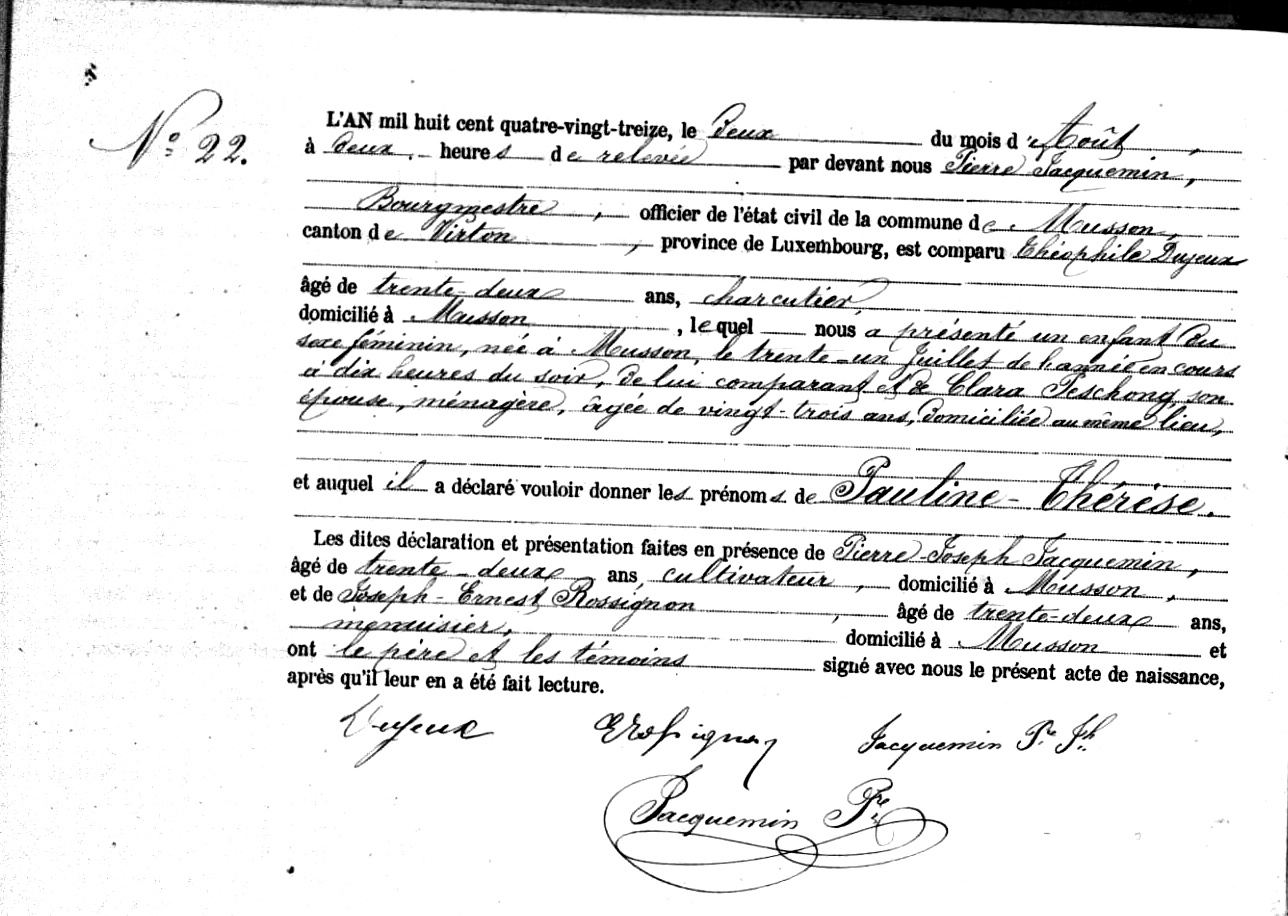 N° 22.
L'AN mil huit cent quatre-vingt-treize, le deux du mois d'Août,
à deux heures de relevée par devant nous Pierre Jacquemin,
Bourgmestre, officier de l'état civil de la commune de Musson,
canton de Virton, province de Luxembourg, est comparu Théophile Dujeux
âgé de trente-deux ans, charcutier,
domicilié à Musson, lequel nous a présenté un enfant du
sexe féminin, née à Musson, le trente-un Juillet de l'année en cours
à dix heures du soir, de lui comparant et de Clara Peschong, son
épouse, ménagère, âgée de vingt-trois ans, domiciliée au même lieu,
et auquel il a déclaré vouloir donner les prénoms de Pauline-Thérèse.
Les dites déclaration et présentation faites en présence de Pierre-Joseph Jacquemin,
âgé de trente-deux ans, cultivateur, domicilié à Musson,
et de Joseph-Ernest Rossignon, âgé de trente-deux ans,
menuisier, domicilié à Musson et
ont le père et les témoins signé avec nous le présent acte de naissance,
après qu'il leur en a été fait lecture.
Dujeux ERossignon Jacquemin Pre Jh
Jacquemin Pre